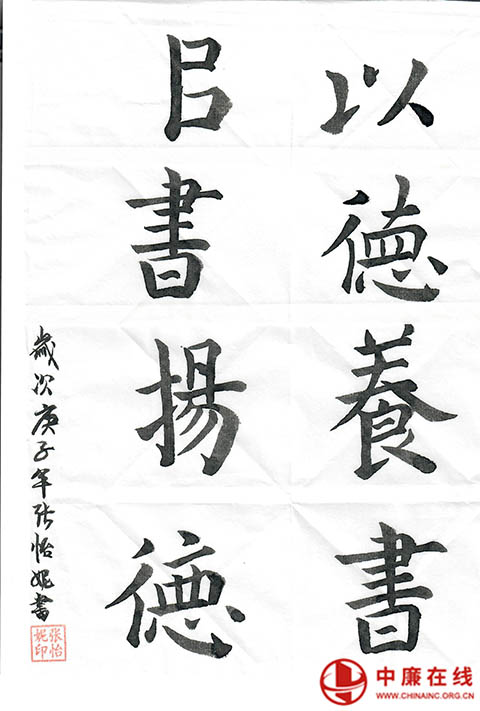 以德養書
㠯書揚德
歲次庚子年张怡妮書
张怡
妮印
中廉在线
WWW.CHINAINC.ORG.CN